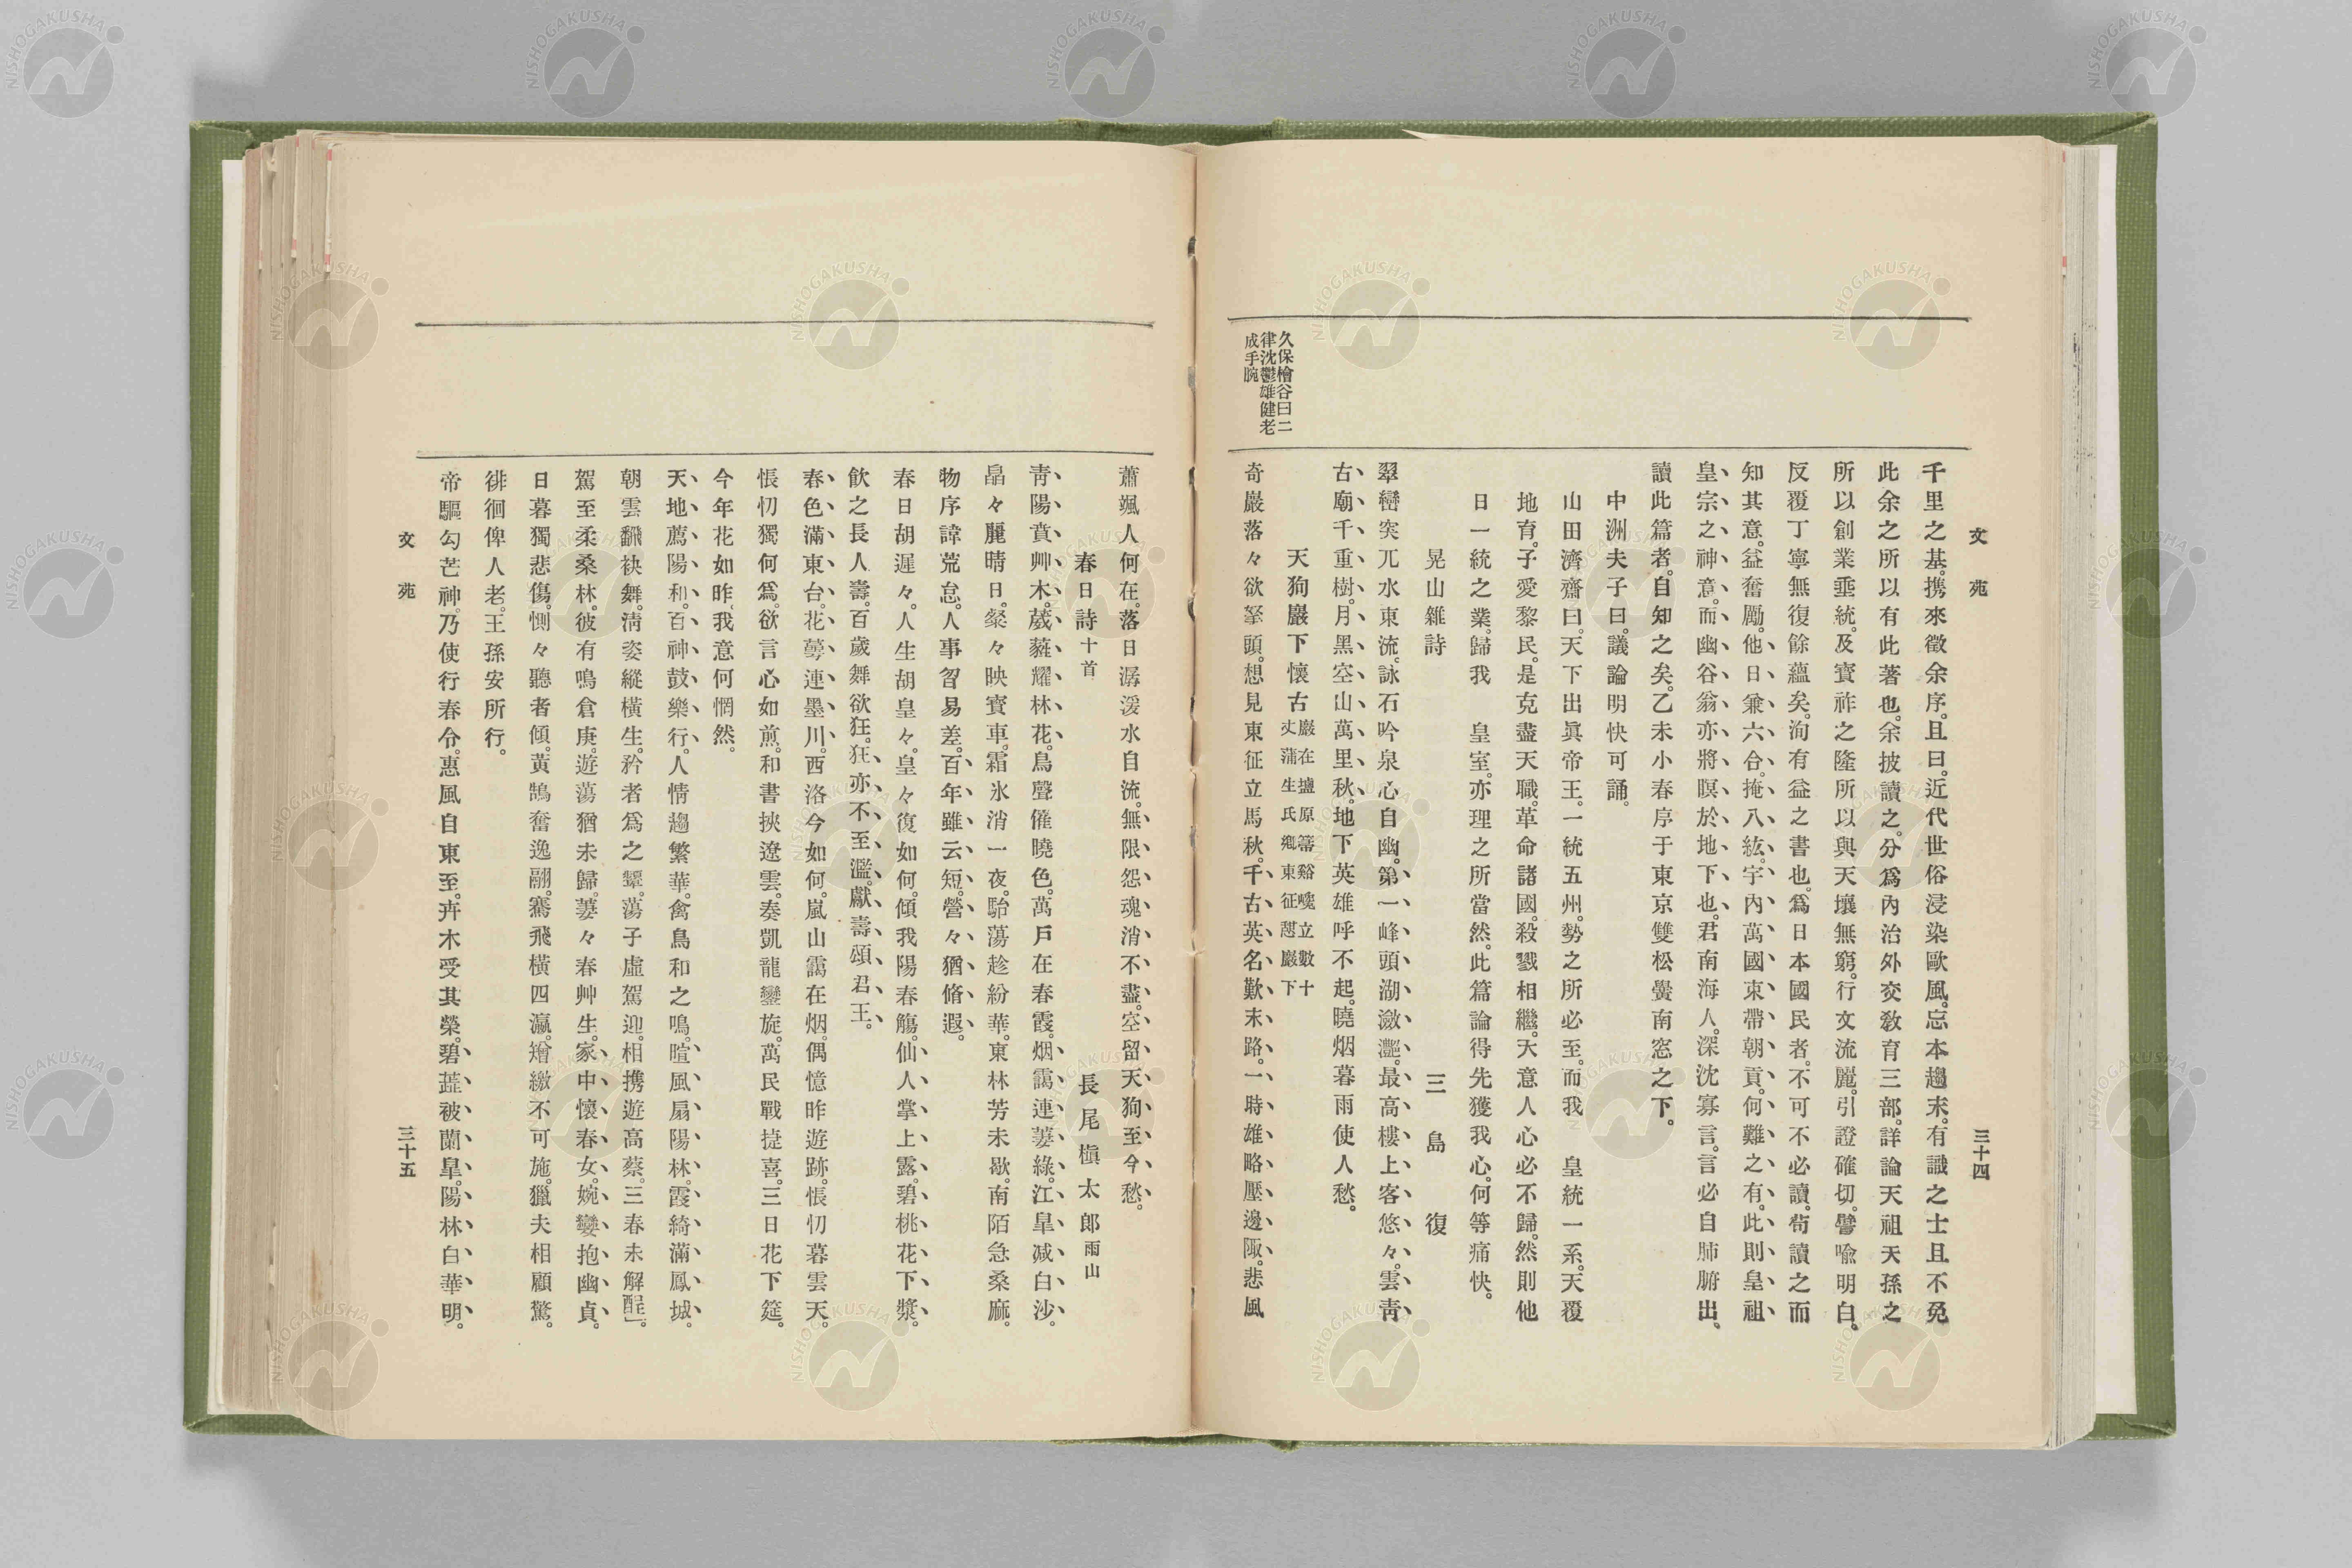 文苑
三十四
千里之基。携來徵余序。且曰。近代世俗浸染歐風。忘本趨末。有識之士且不免
此余之所以有此著也。余披讀之。分爲內治外交敎育三部。詳論天祖天孫之
所以創業垂統。及寶祚之隆所以與天壤無窮。行文流麗。引證確切。譬喩明白。
反覆丁寧無復餘蘊矣。洵有益之書也。爲日本國民者。不可不必讀。苟讀之而
知其意。益奮勵。他日兼六合。掩八紘。宇內萬國束帶朝貢。何難之有。此則皇祖
皇宗之神意。而幽谷翁亦將瞑於地下也。君南海人。深沈寡言。言必自肺腑出。
讀此篇者。自知之矣。乙未小春序于東京雙松黌南窓之下。
中洲夫子曰。議論明快可誦。
山田濟齋曰。天下出眞帝王。一統五州。勢之所必至。而我 皇統一系。天覆
地育。子愛黎民。是克盡天職。革命諸國。殺戮相繼。天意人心必不歸。然則他
日一統之業。歸我 皇室。亦理之所當然。此篇論得先獲我心。何等痛快。
晃山雜詩 三島復
翠巒突兀水東流。詠石吟泉心自幽。第一峰頭湖瀲灔。最高樓上客悠々。雲靑
古廟千重樹。月黑空山萬里秋。地下英雄呼不起。曉烟暮雨使人愁。
天狗巖下懷古 巖在塩原箒谿嘵立數十
丈蒲生氏鄕東征憇巖下
久保檜谷曰二
律沈鬱雄健老
成手腕
奇巖落々欲拏頭。想見東征立馬秋。千古英名歎末路。一時雄略壓邊陬。悲風
蕭颯人何在。落日潺湲水自流。無限怨魂消不盡。空留天狗至今愁。
春日詩十首 長尾槇太郎雨山
靑陽賁艸木。葳蕤耀林花。鳥聲催曉色。萬戶在春霞。烟靄連萋綠。江皐減白沙。
晶々麗晴日。粲々映寶車。霜氷消一夜。駘蕩趁紛華。東林芳未歇。南陌急桑麻。
物序諱荒怠。人事習易差。百年雖云短。營々猶脩遐。
春日胡遲々。人生胡皇々。皇々復如何。傾我陽春觴。仙人掌上露。碧桃花下漿。
飮之長人壽。百歲舞欲狂。狂亦不至濫。獻壽頌君王。
春色滿東台。花夢連墨川。西洛今如何。嵐山靄在烟。偶憶昨遊跡。悵忉暮雲天。
悵忉獨何爲。欲言心如煎。和書挾遼雲。奏凱龍鑾旋。萬民戰捷喜。三日花下筵。
今年花如昨。我意何惘然。
天地薦陽和。百神鼓樂行。人情趨繁華。禽鳥和之鳴。暄風扇陽林。霞綺滿鳳城。
朝雲飜袂舞。淸姿縱橫生。矜者爲之顰。蕩子虛駕迎。相携遊高蔡。三春未解酲。
駕至柔桑林。彼有鳴倉庚。遊蕩猶未歸。萋々春艸生。家中懷春女。婉孌抱幽貞。
日暮獨悲傷。惻々聽者傾。黃鵠奮逸翮。騫飛橫四瀛。矰繳不可施。獵夫相顧驚。
徘徊俾人老。王孫安所行。
帝驅勾芒神。乃使行春令。惠風自東至。卉木受其榮。碧蕋被蘭皐。陽林白華明。
文苑
三十五